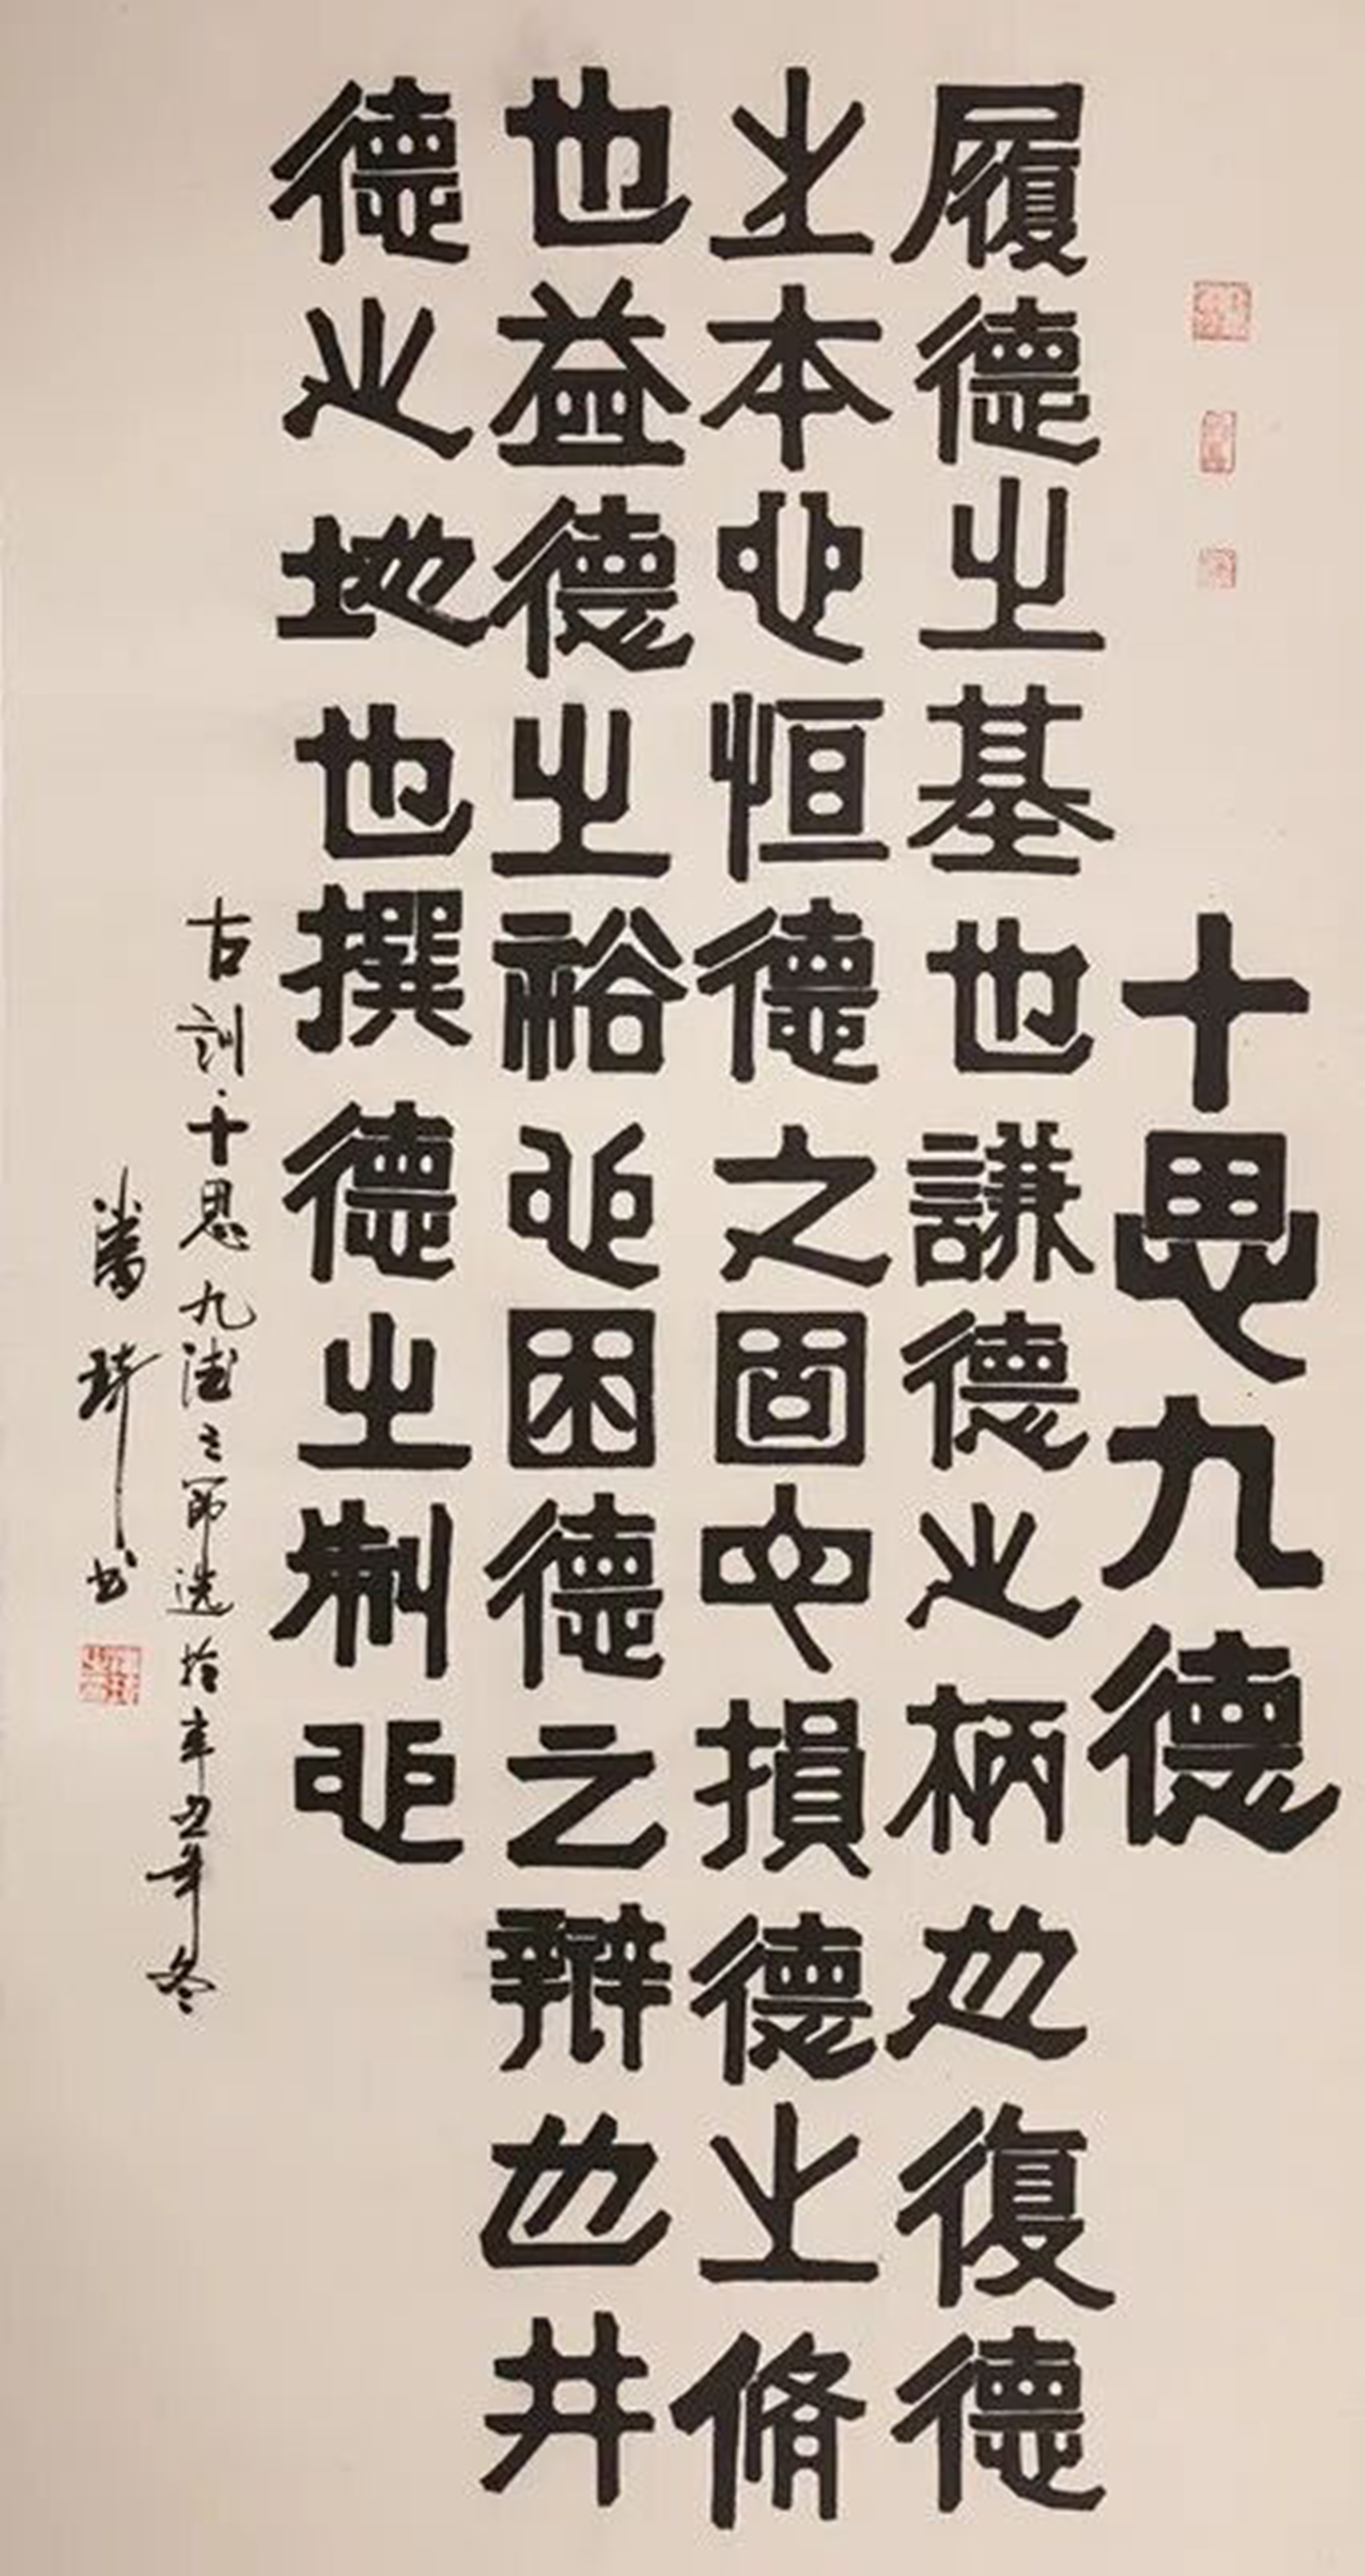 十思九德
履德之基也謙德之柄也復德
之本也恒德之固也損德之脩
也益德之裕也困德之辯也井
德之地也撰德之制也
古訓·十思九德之節选於辛丑年冬
潘琦书